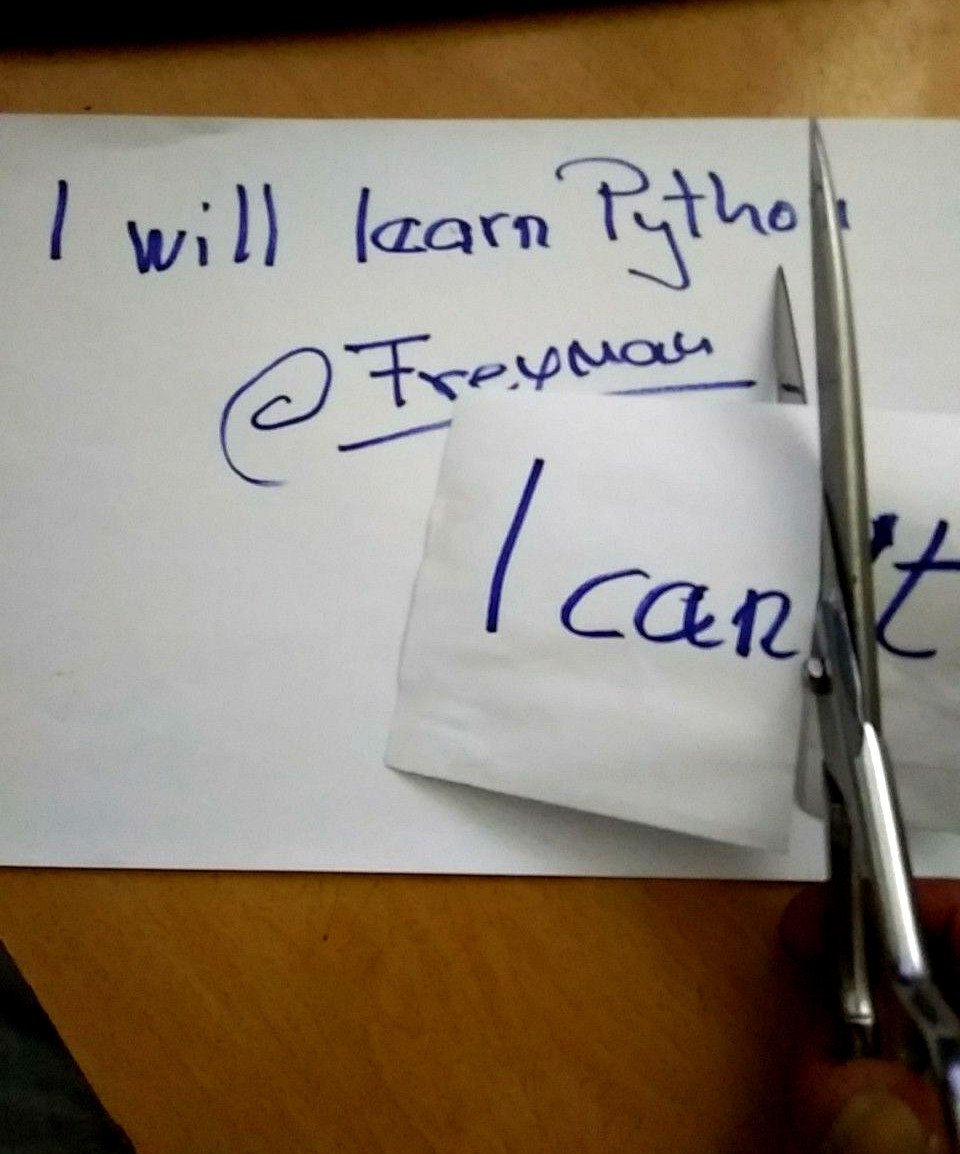 I will learn Python
@Freyman
I can't